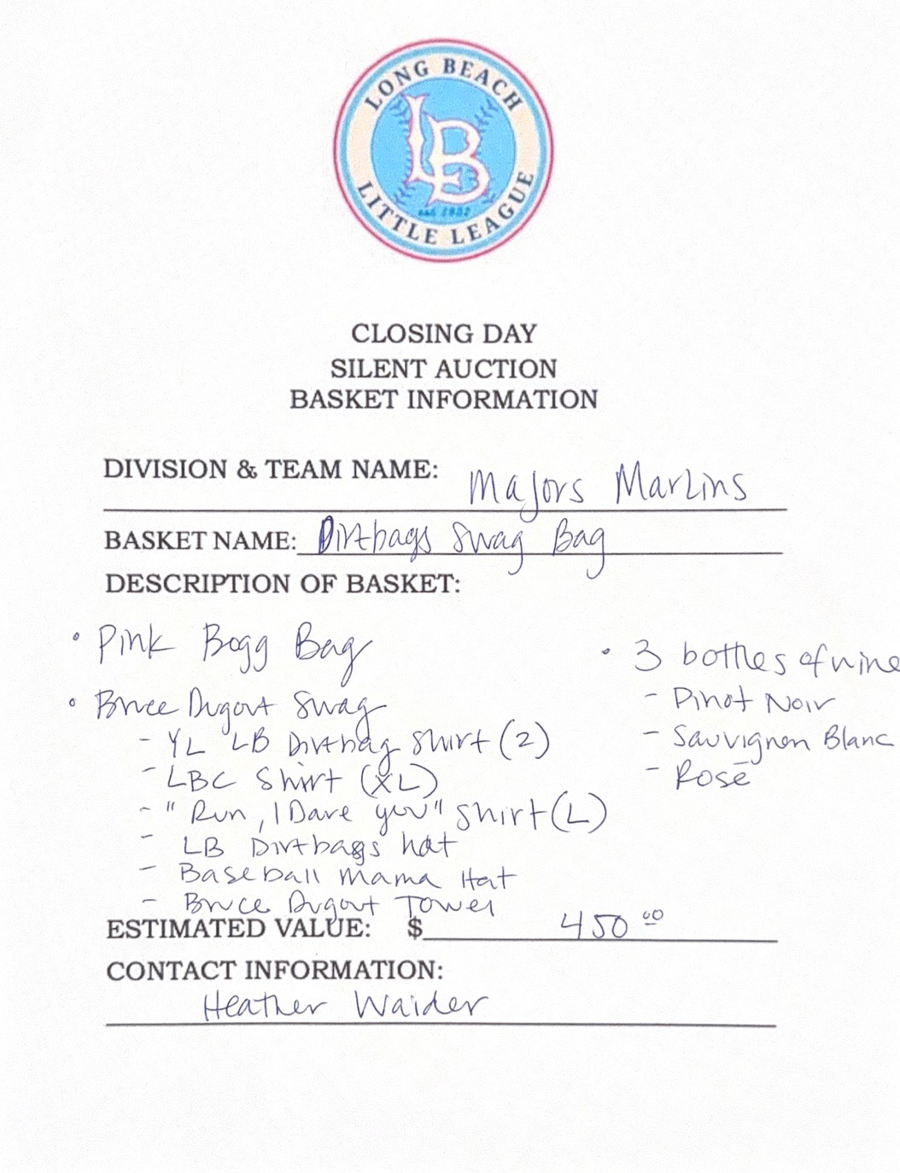 LONG BEACH
LB
est 1952
LITTLE LEAGUE
CLOSING DAY
SILENT AUCTION
BASKET INFORMATION
DIVISION & TEAM NAME: Majors Marlins
BASKET NAME: Dirtbags Swag Bag
DESCRIPTION OF BASKET:
• Pink Bogg Bag
• Bruce Dugout Swag
- YL LB Dirtbag Shirt (2)
- LBC Shirt (XL)
- "Run, I Dare you" shirt (L)
- LB Dirtbags hat
- Baseball Mama Hat
- Bruce Dugout Towel
• 3 bottles of wine
- Pinot Noir
- Sauvignon Blanc
- Rosé
ESTIMATED VALUE: $ 450 00
CONTACT INFORMATION:
Heather Waider